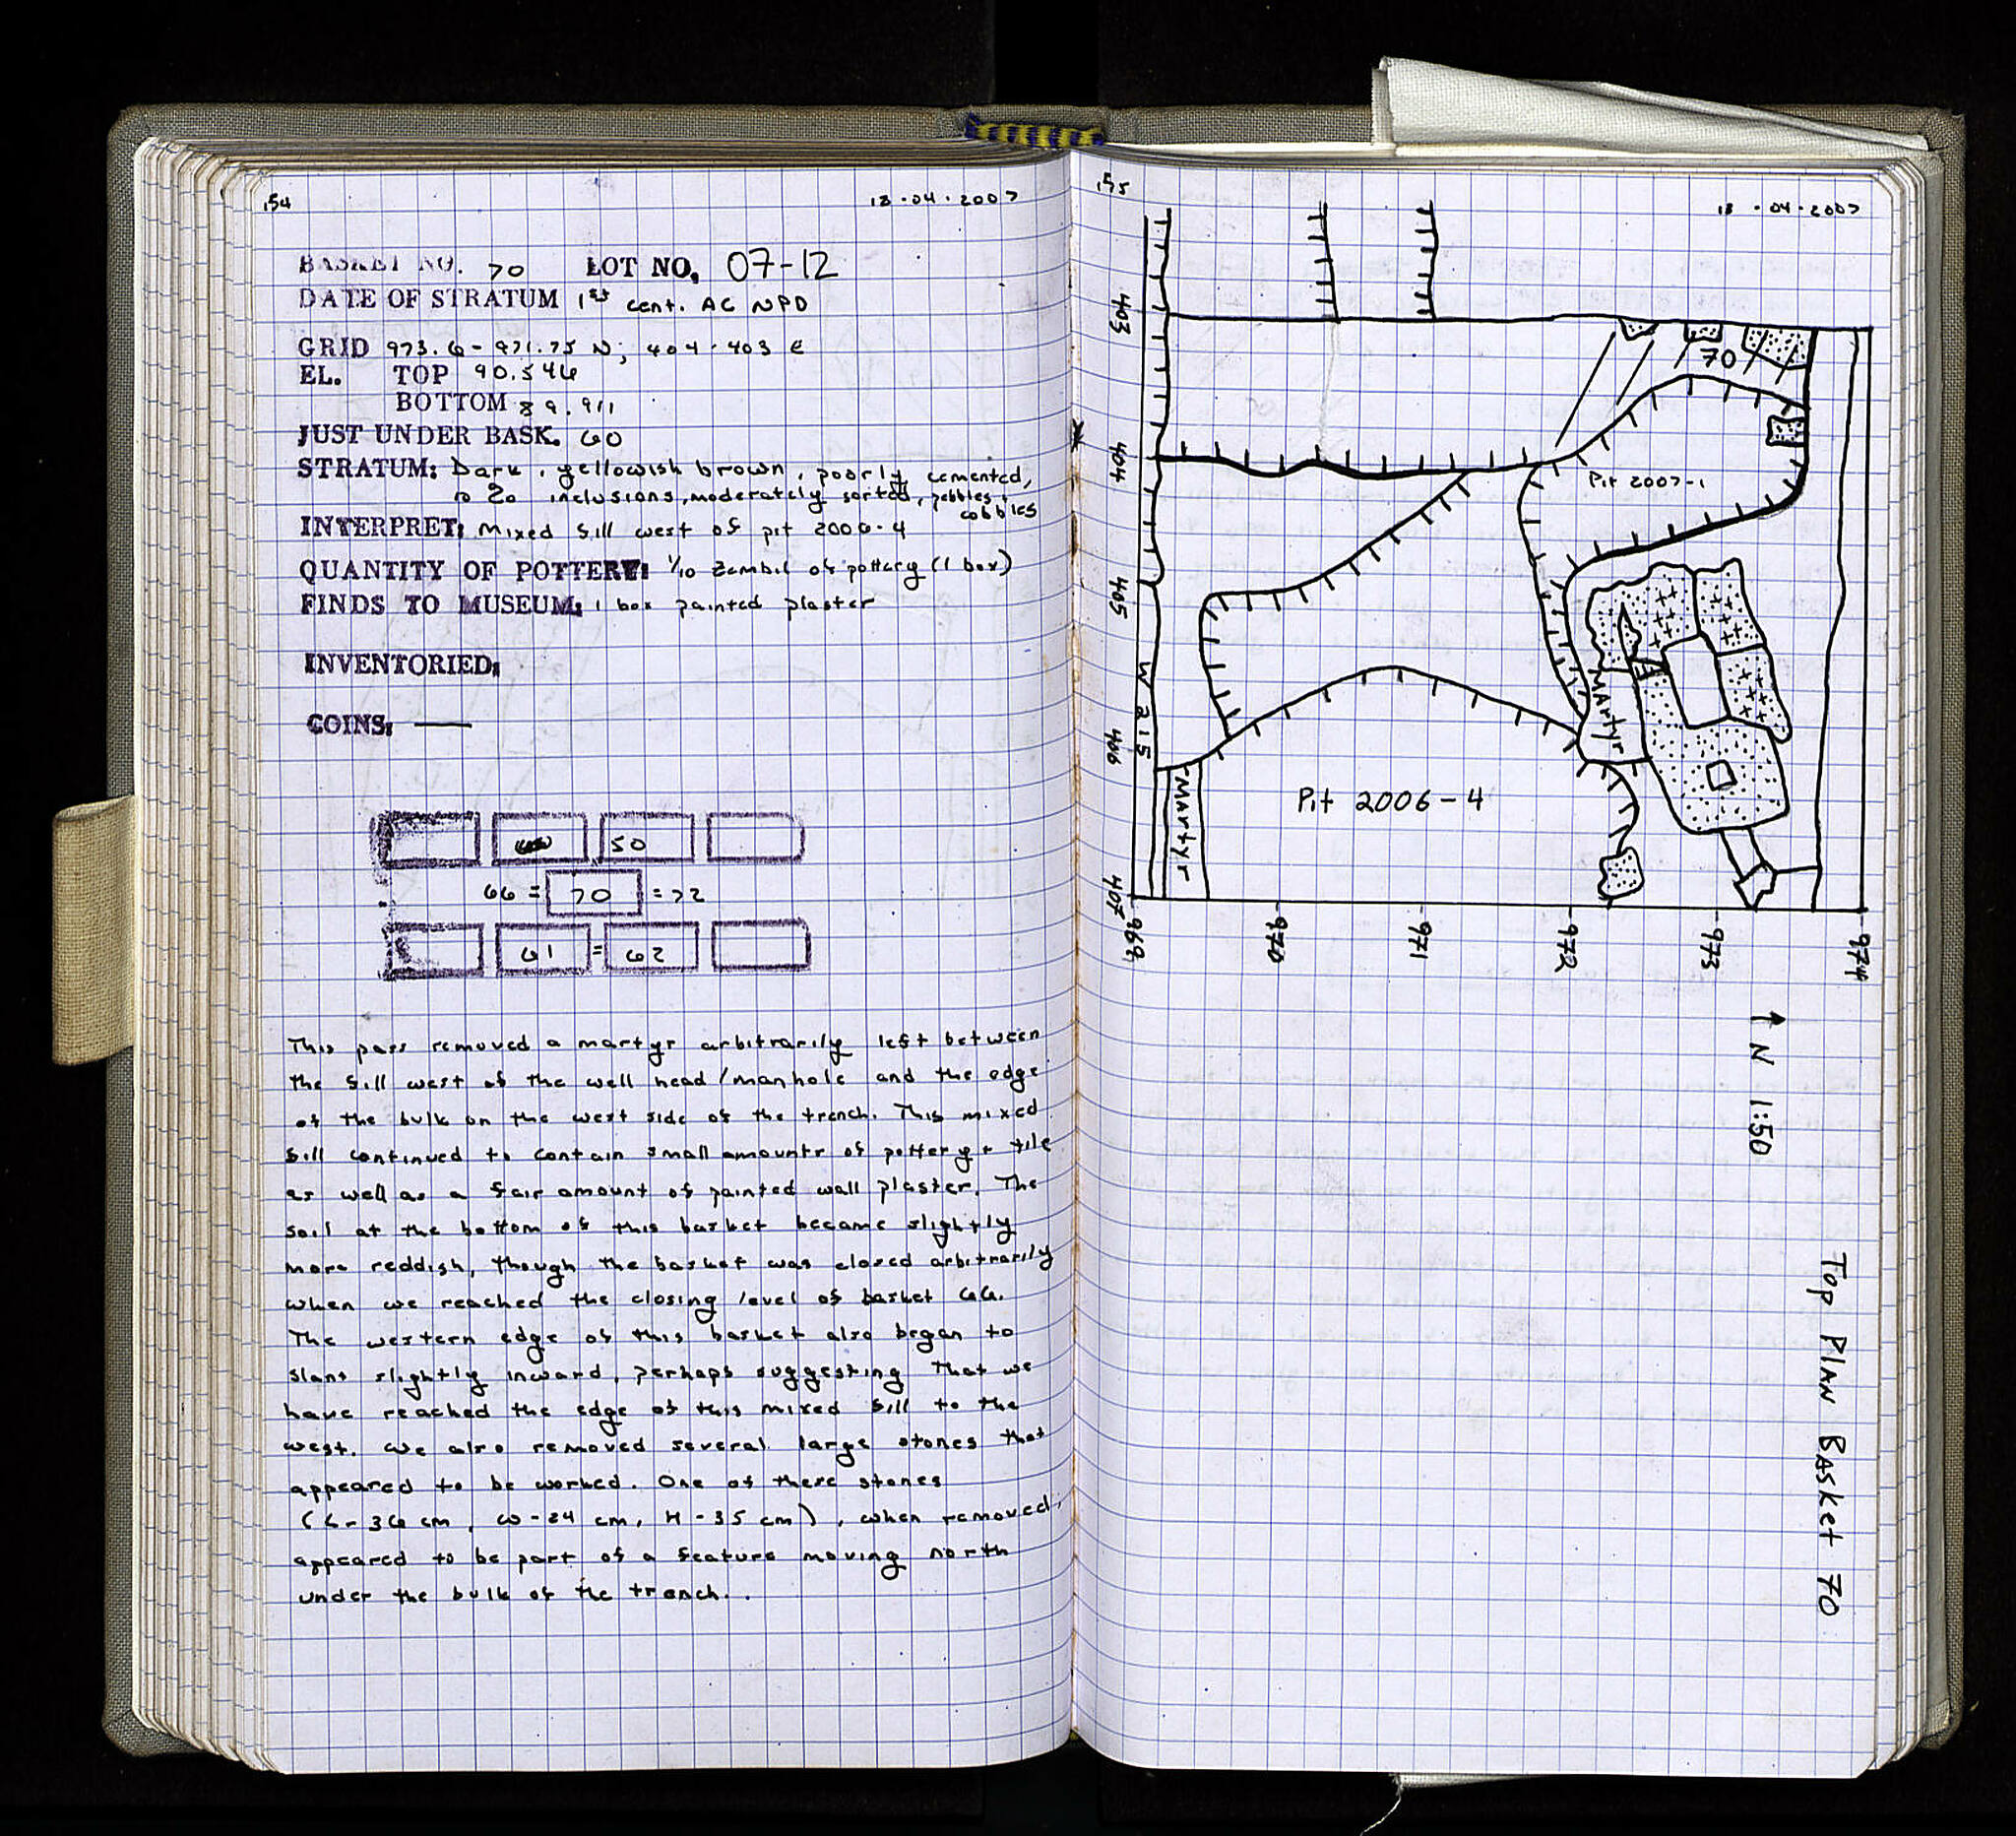 154
18.04.2007
BASKET NO. 70 LOT NO, 07-12
DATE OF STRATUM 1st cent. AC NPD
GRID 973.6-971.75 N; 404-403 E
EL. TOP 90.546
BOTTOM 89.911
JUST UNDER BASK. 60
STRATUM: Dark, yellowish brown, poorly cemented,
20 inclusions, moderately sorted, pebbles +
cobbles
INTERPRET: Mixed fill west of pit 2006-4
QUANTITY OF POTTERY: 1/10 zembil of pottery (1 box)
FINDS TO MUSEUM: 1 box painted plaster
INVENTORIED:
COINS: —
50
66 = 70 = 72
61 = 62
This pass removed a martyr arbitrarily left between
the fill west of the well head/manhole and the edge
of the bulk on the west side of the trench. This mixed
fill continued to contain small amounts of pottery + tile
as well as a fair amount of painted wall plaster. The
soil at the bottom of this basket became slightly
more reddish, though the basket was closed arbitrarily
when we reached the closing level of basket 66.
The western edge of this basket also began to
slant slightly inward, perhaps suggesting that we
have reached the edge of this mixed fill to the
west. We also removed several large stones that
appeared to be worked. One of these stones
(L-36 cm, W-24 cm, H-35 cm), when removed,
appeared to be part of a feature moving north
under the bulk of the trench.
155
18.04.2007
403
404
405
406
407
70
Pit 2007-1
W 215
Martyr
Martyr
Pit 2006-4
969
970
971
972
973
974
↑ N 1:50
Top Plan Basket 70